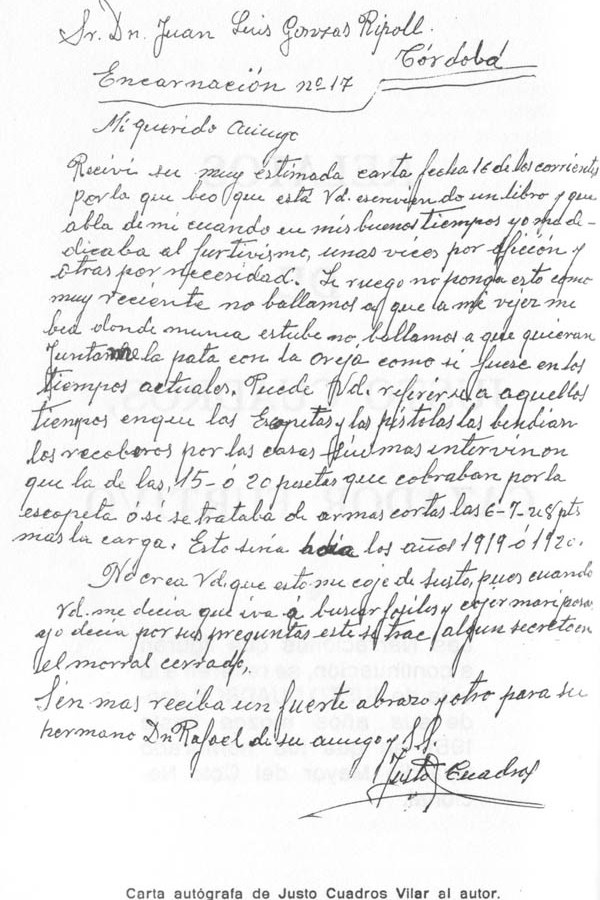 Sr. Dn. Juan Luis Gonzas Ripoll.
Córdoba
Encarnación nº 17
Mi querido amigo
Recivi su muy estimada carta fecha 16 de los corrientes
por la que beo que está Vd. escriviendo un libro y que
abla di mi cuando en mis buenos tiempos yo me de-
dicaba al furtivismo, unas vices por afición y
otras por necesidad. Le ruego no ponga esto como
muy reciente no ballamos a que la mi vejez me
bea donde nunca estube no, ballamos a que quieran
Juntarme la pata con la oreja como si fuese en los
tiempos actuales. Puede Vd. referirse a aquellos
tiempos en que las Escopetas y las pistolas las bendian
los recoberos por las casas sin mas intervinon
que la de las, 15- ó 20 pesetas que cobraban por la
escopeta o si se trataba de armas cortas las 6-7-u 8 pts
mas la carga. Esto siria los años 1919 ó 1920.
No crea Vd. que esto mi coje de susto, pues cuando
Vd. me decia que iva a buscar fosiles y cojer mariposas
yo decia por sus preguntas este se trae algun secreto en
el morral cerrado,
Sin mas reciba un fuerte abrazo y otro para su
hermano Dn Rafael de su amigo y S.S.
Justo Cuadros
Carta autógrafa de Justo Cuadros Vilar al autor.